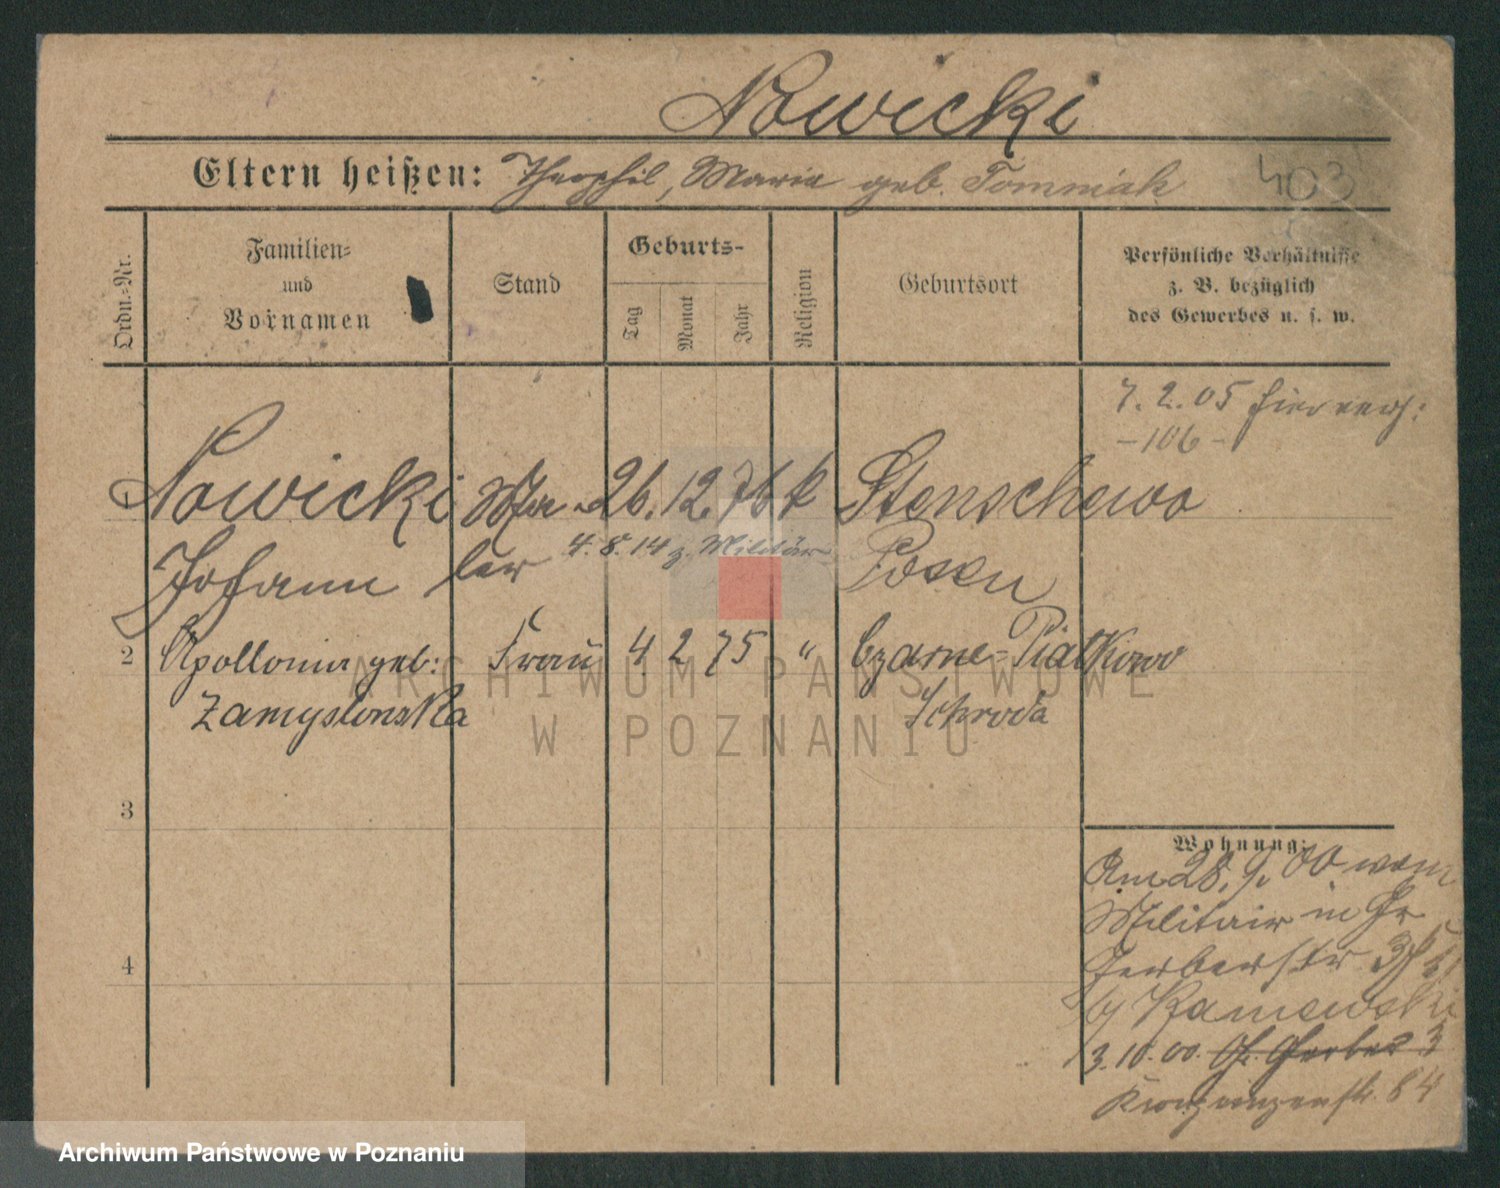 Nowicki
Eltern heißen: Theophil, Maria geb. Tomniak
403
Ordn.-Nr.
Familien-
und
Vornamen
Stand
Geburts-
Tag
Monat
Jahr
Religion
Geburtsort
Persönliche Verhältnisse
z. B. bezüglich
des Gewerbes u. s. w.
7. 2. 05
-106-
Nowicki Ma- 26. 12. 76 k Stenschewo
Johann ler 4. 8. 14 z. Militär Posen
2 Apollonia geb: Frau 4 2 75 " Czarne-Piatkowo
Zamyslonska Schroda
3
4
Wohnung:
Am 28. 9. 00 vom
Militair in Gr
Gerberstr
3. 10. 00. Gr. Gerber 3
84
ARCHIWUM PAŃSTWOWE
W POZNANIU
Archiwum Państwowe w Poznaniu